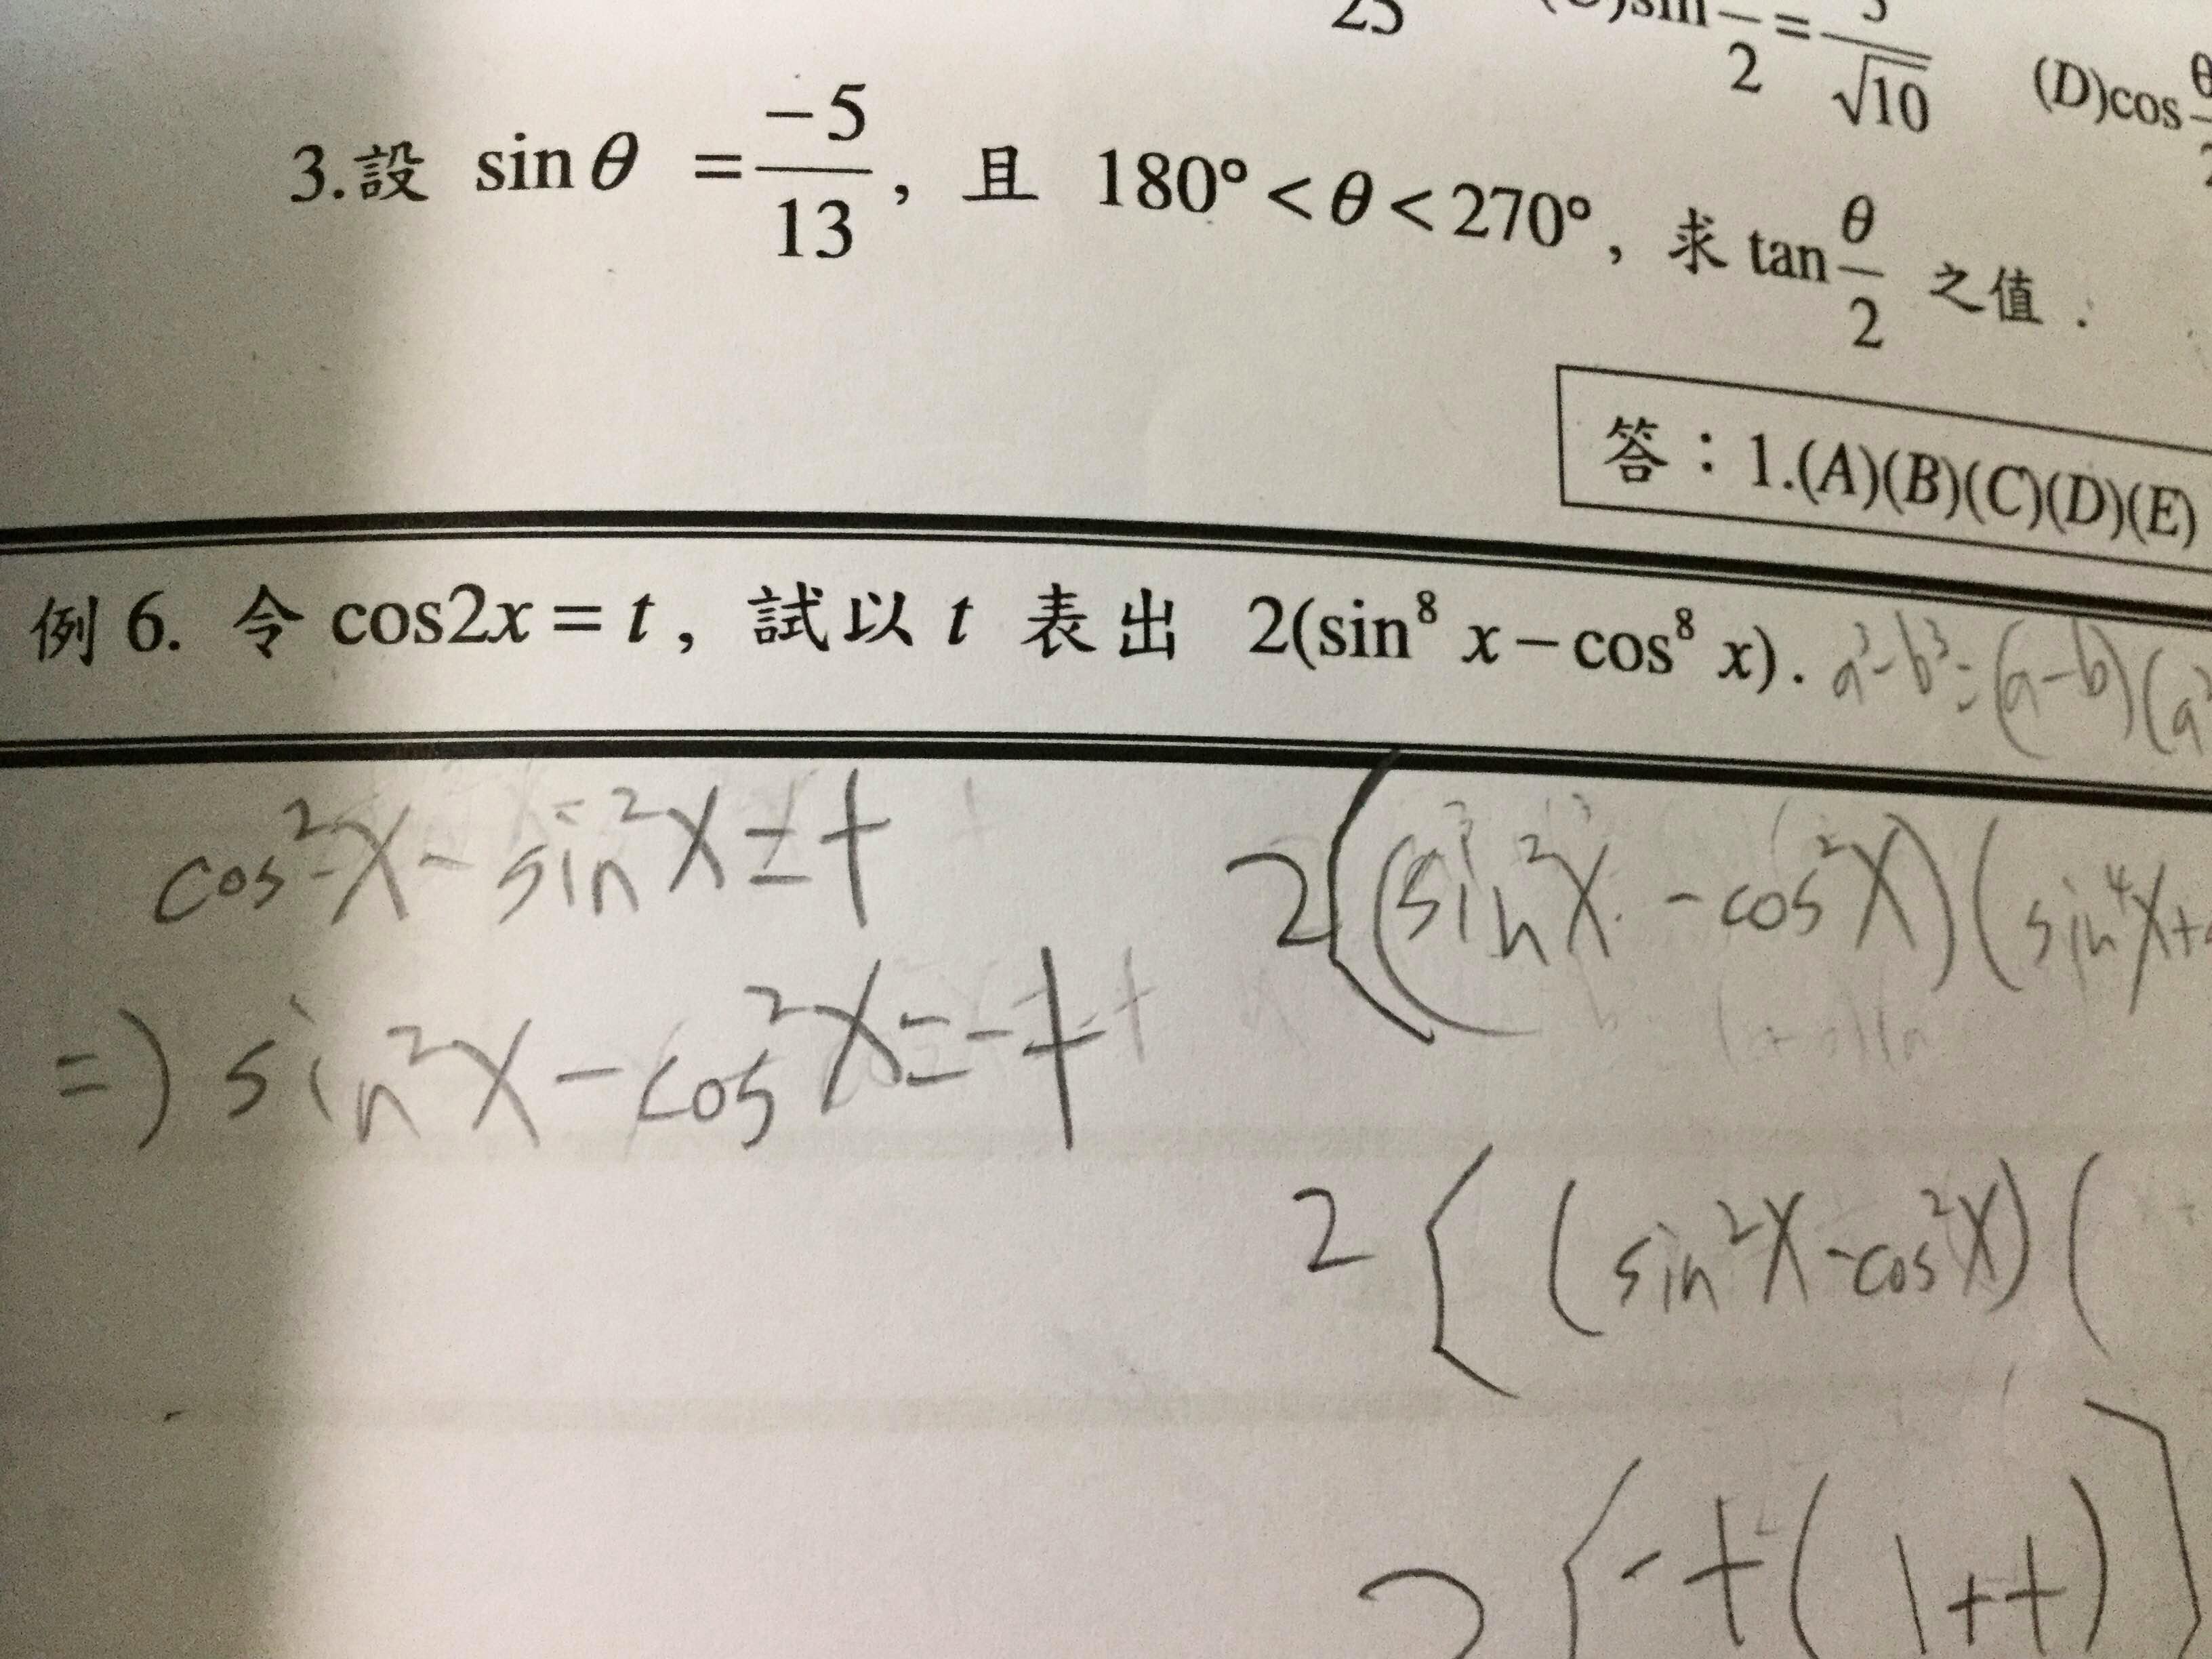 25 (C)sin 2 = √10 (D)cos θ
3.設 sinθ = -5/13, 且 180° < θ < 270°, 求 tan θ/2 之值.
答:1.(A)(B)(C)(D)(E)
例 6. 令 cos2x = t, 試以 t 表出 2(sin⁸ x − cos⁸ x). a³-b³=(a-b)(a²
cos²x - sin²x = t
2((sin²x - cos²x)(sin⁴x+
=) sin²x - cos²x = -t
2{(sin²x - cos²x)(
2{-t(1+t)}